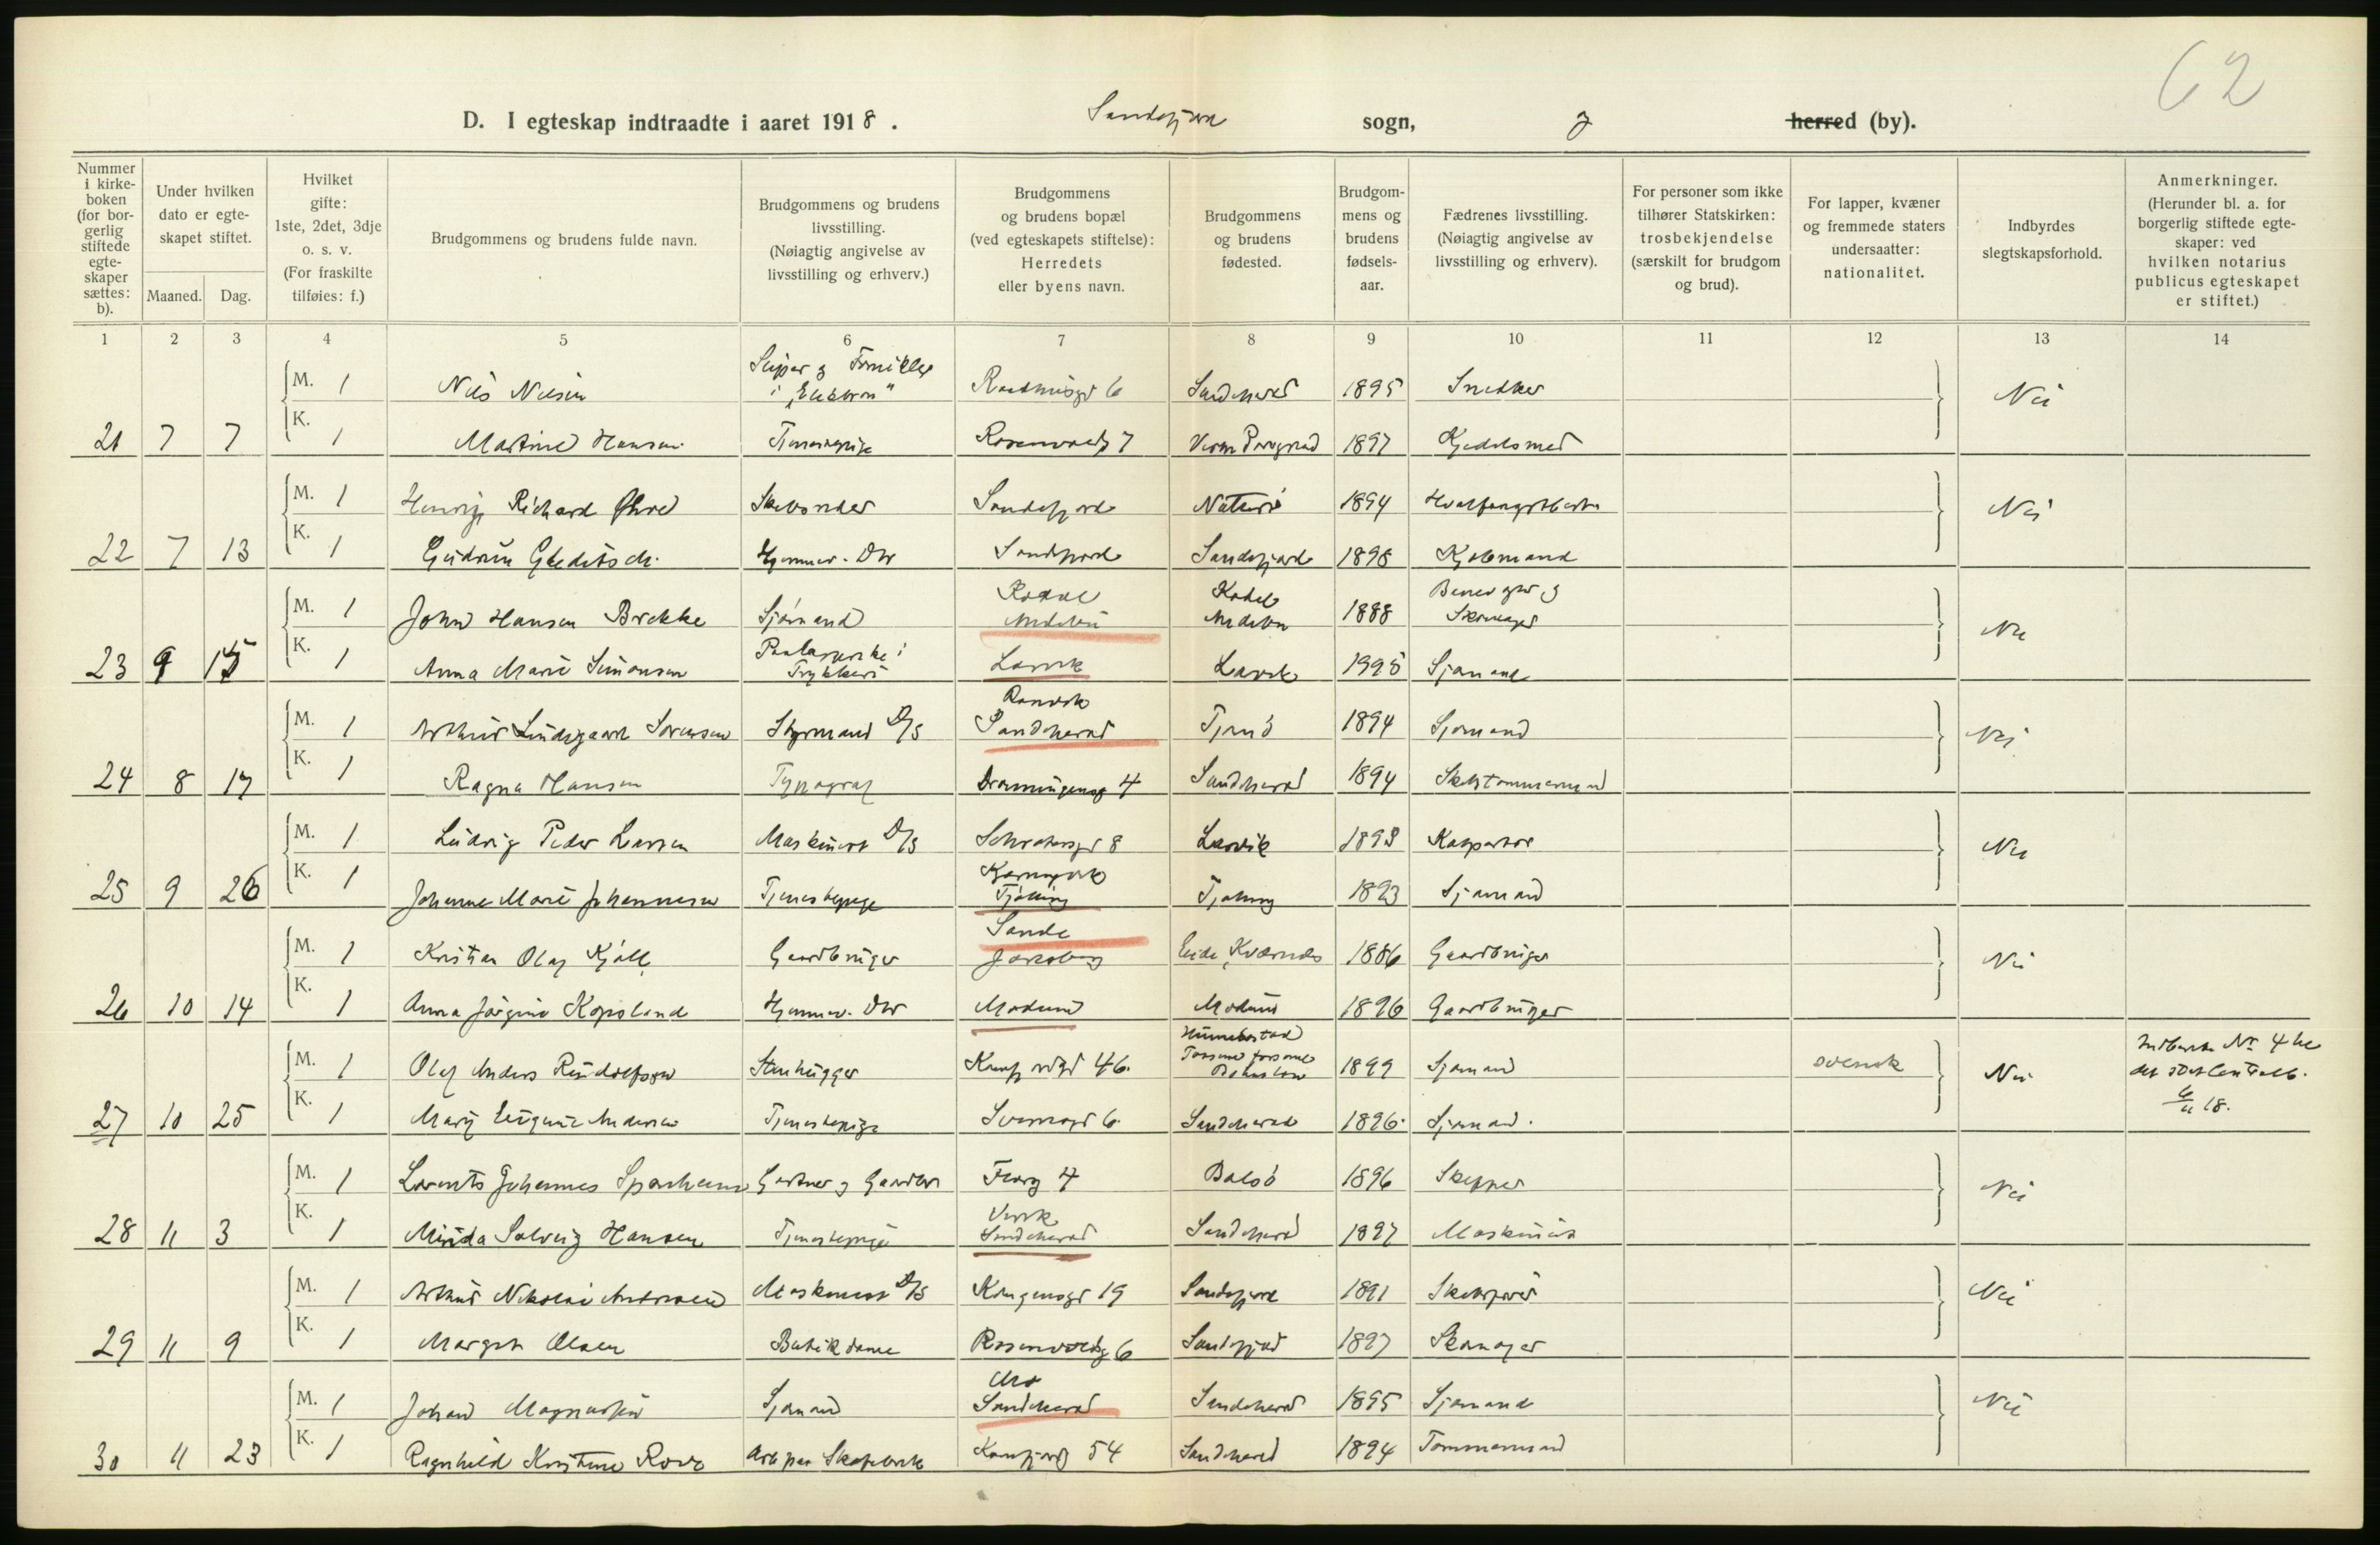 62
D. I egteskap indtraadte i aaret 1918. Sandefjord sogn, herred (by).
Nummer i kirkeboken (for borgerlig stiftede egteskaper sættes: b).
Under hvilken dato er egteskapet stiftet.
Maaned. Dag.
Hvilket gifte: 1ste, 2det, 3dje o. s. v. (For fraskilte tilføies: f.)
Brudgommens og brudens fulde navn.
Brudgommens og brudens livsstilling. (Nøiagtig angivelse av livsstilling og erhverv.)
Brudgommens og brudens bopæl (ved egteskapets stiftelse): Herredets eller byens navn.
Brudgommens og brudens fødested.
Brudgommens og brudens fødselsaar.
Fædrenes livsstilling. (Nøiagtig angivelse av livsstilling og erhverv).
For personer som ikke tilhører Statskirken: trosbekjendelse (særskilt for brudgom og brud).
For lapper, kvæner og fremmede staters undersaatter: nationalitet.
Indbyrdes slegtskapsforhold.
Anmerkninger. (Herunder bl. a. for borgerlig stiftede egteskaper: ved hvilken notarius publicus egteskapet er stiftet.)
1 2 3 4 5 6 7 8 9 10 11 12 13 14
M. 1 Nils Nilsen Sliper og Fornikler i "Elektron" Raadhusgt 6 Sandeherred 1895 Snekker Nei
21 7 7 K. 1 Martine Hansen Tjenestepige Rosenvoldg 7 1897 Kjedelsmed
M. 1 Henrig Richard Skibsreder Sandefjord Nøtterø 1894 Nei
22 7 13 K. 1 Gudrun Gleditsch Hjemmev. Dtr Sandefjord Sandefjord 1898 Kjøbmand
M. 1 John Hansen Brekke Sjømand Kodal Andebu Kodal Andebu 1888 Skomager Nei
23 9 15 K. 1 Anna Marie Simonsen Trykkeri Larvik Larvik 1995 Sjømand
M. 1 Arthur Lindgaard Sørensen Styrmand D/S Ranvik Sandeherred Tjømø 1894 Sjømand Nei
24 8 17 K. 1 Ragna Hansen Typograf Dronningensg 4 Sandeherred 1894 Skibstømmermand
M. 1 Ludvig Peder Larsen Maskinist D/S 8 Larvik 1893 Nei
25 9 26 K. 1 Johanne Marie Johannesen Tjenestepige Tjølling Tjølling 1893 Sjømand
M. 1 Kristian Olaf Kjøll Gaardbruger Sande Jarlsberg Eide, Kværnes 1886 Gaardbruger Nei
26 10 14 K. 1 Anna Jørgine Kopseland Hjemmev. Dtr Modum Modum 1896 Gaardbruger
M. 1 Olaf Anders Rudolfsson Stenhugger 46 Hunnebostad 1899 Sjømand svensk Nei
27 10 25 K. 1 Mary Eugenie Andersen Tjenestepige 6 Sandeherred 1896 Sjømand.
M. 1 Lorents Johannes Gartner og Gaardbr 4 1896 Skipper Nei
28 11 3 K. 1 Minda Solveig Hansen Tjenestepige Virik Sandeherred Sandeherred 1897 Maskinist
M. 1 Arthur Nikolai Andersen Maskinist D/S Kongensgt 19 Sandefjord 1891 Skibsfører Nei
29 11 9 K. 1 Margit Olsen Butikdame Rosenvoldg 6 Sandefjord 1897 Skomager
M. 1 Johan Magnussen Sjømand Sandeherred Sandeherred 1895 Sjømand Nei
30 11 23 K. 1 Ragnhild Kristine Rove Arb paa Skofabrik Kamfjordg 54 Sandeherred 1894 Tømmermand